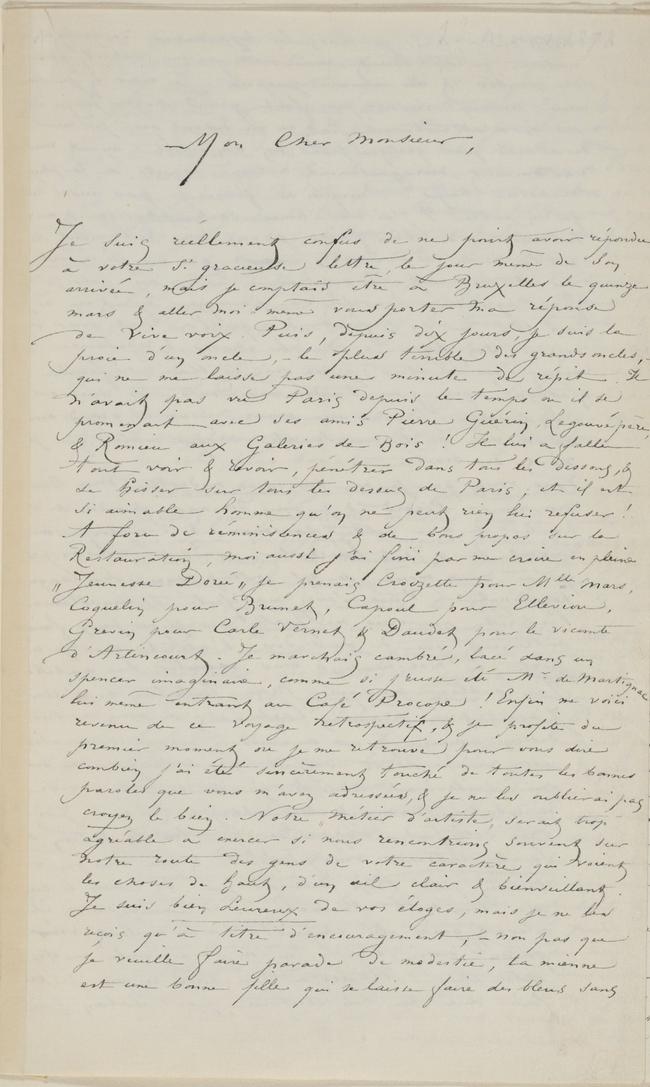 Mon Cher Monsieur,
Je suis réellement confus de ne point avoir répondu
à votre Si gracieuse lettre, le jour même de Son
arrivée, mais je comptais être à Bruxelles le quinze
mars & aller moi-même vous porter ma réponse
de Vive voix. Puis, depuis dix jours, je suis la
proie d'un oncle, – le plus terrible des grands oncles, –
qui ne me laisse pas une minute de répit. Il
n'avait pas vu Paris depuis le temps où il se
promenait avec ses amis Pierre Guérin, Legouvé père,
& Romieu aux Galeries de Bois ! Il lui a fallu
tout voir & revoir, pénétrer dans tous les dessous, &
se hisser sur tous les dessus de Paris, et il est
Si aimable homme qu'on ne peut rien lui refuser !
A force de réminiscences & de bons propos sur la
Restauration, moi aussi j'ai fini par me croire en pleine
„Jeunesse Dorée„ je prenais Croizette pour Mlle Mars,
Coquelin pour Brunet, Capoul pour Elleviou,
Grévin pour Carle Vernet & Daudet pour le vicomte
d'Arlincourt. Je marchais cambré, lacé dans un
spencer imaginaire, comme si j'eusse été Mr de Martignac
lui même entrant au Café Procope ! Enfin me voici
revenu de ce voyage retrospectif, & je profite du
premier moment où je me retrouve pour vous dire
combien j'ai été sincèrement touché de toutes les bonnes
paroles que vous m'avez adressées, & je ne les oublierai pas
croyez le bien. Notre métier d'artiste, serait trop
agréable à exercer si nous rencontrions souvent sur
notre route des gens de votre caractère qui voient
les choses de haut, d'un œil clair & bienveillant.
Je suis bien heureux de vos éloges, mais je ne les
reçois qu'à titre d'encouragement, – non pas que
je veuille faire parade de modestie, la mienne
est une bonne fille qui se laisse faire des bleus sans